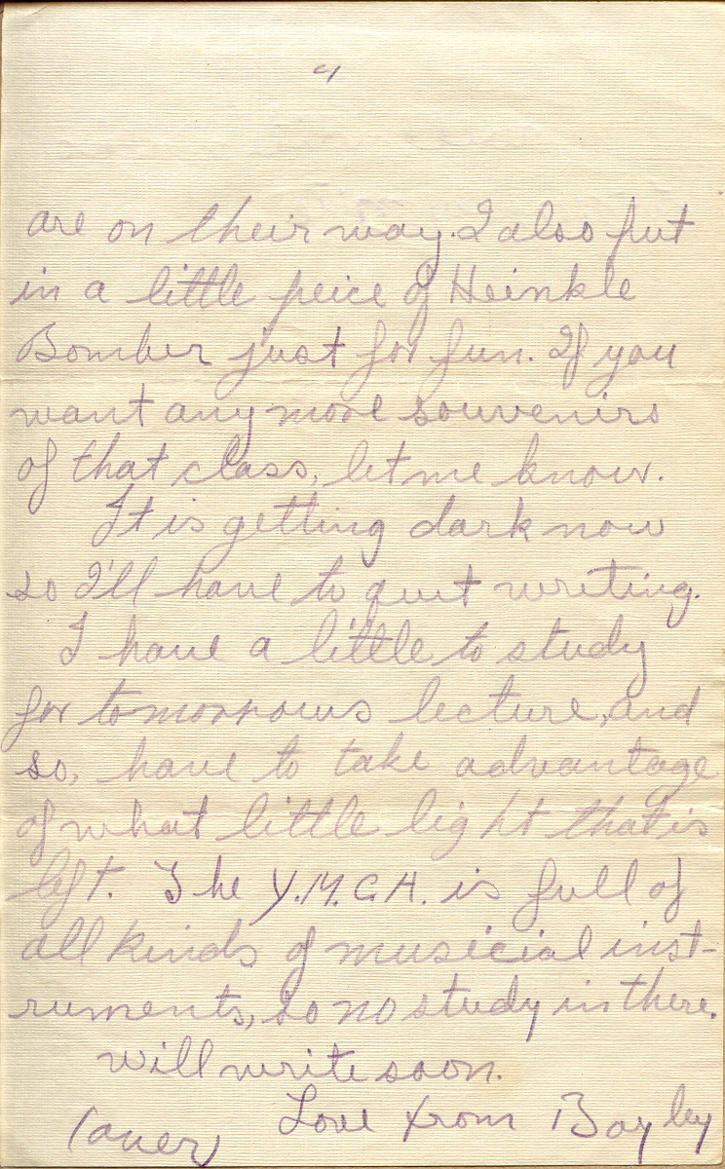 4
are on their way. I also put
in a little peice of Heinkle
Bomber just for fun. If you
want any more souvenirs
of that class, let me know.
It is getting dark now
so I'll have to quit writing.
I have a little to study
for tomorrows lecture, and
so, have to take advantage
of what little light that is
left. The Y.M.C.A. is full of
all kinds of musicial inst-
ruments, so no study in there.
will write soon.
Love from Bayley
(over)